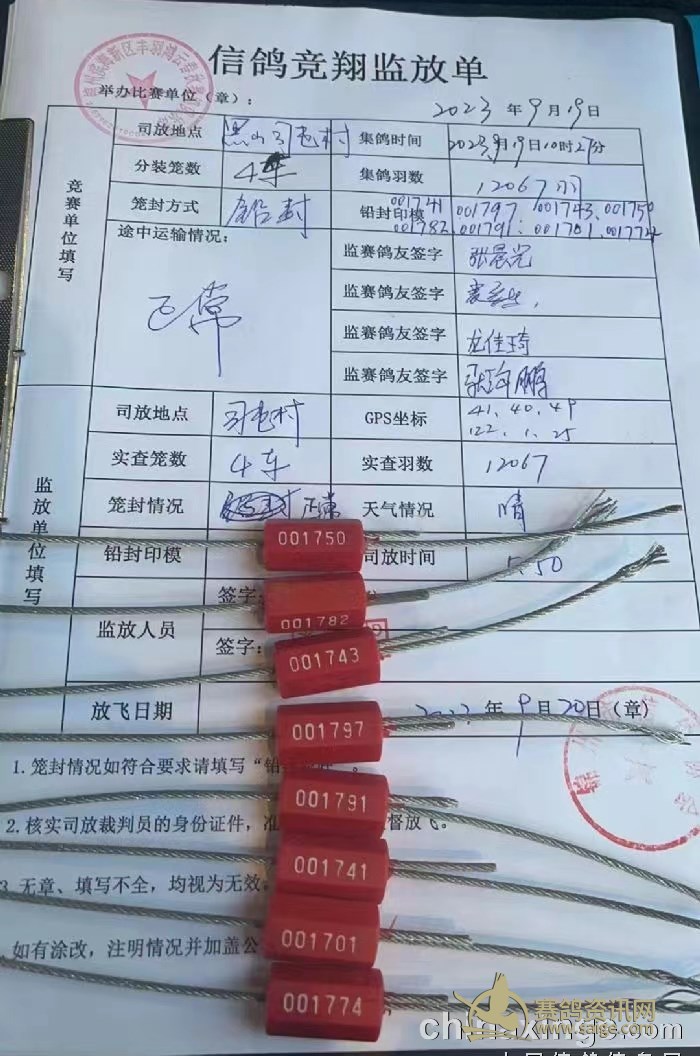 信鸽竞翔监放单
举办比赛单位（章）：
2023 年 9 月 19 日
竞赛单位填写
司放地点 集鸽时间 2023年9月19日10时27分
分装笼数 4车 集鸽羽数 12067羽
笼封方式 铅封 铅封印模 001741 001797 001743、001750
001782 001791 001701 001774
途中运输情况：
正常
监赛鸽友签字 张晨光
监赛鸽友签字
监赛鸽友签字 龙佳琦
监赛鸽友签字 鹏
监放单位填写
司放地点 GPS坐标 41.40.49
122.1.25
实查笼数 4车 实查羽数 12067
笼封情况 正常 天气情况 晴
铅封印模 司放时间 5.50
监放人员 签字：
签字：
放飞日期 年 9 月 20 日（章）
1.笼封情况如符合要求请填写“铅
2.核实司放裁判员的身份证件，准 督放飞。
3.无章、填写不全，均视为无效。
如有涂改，注明情况并加盖公
001750
001782
001743
001797
001791
001741
001701
001774
赛鸽资讯网
www.saige.com